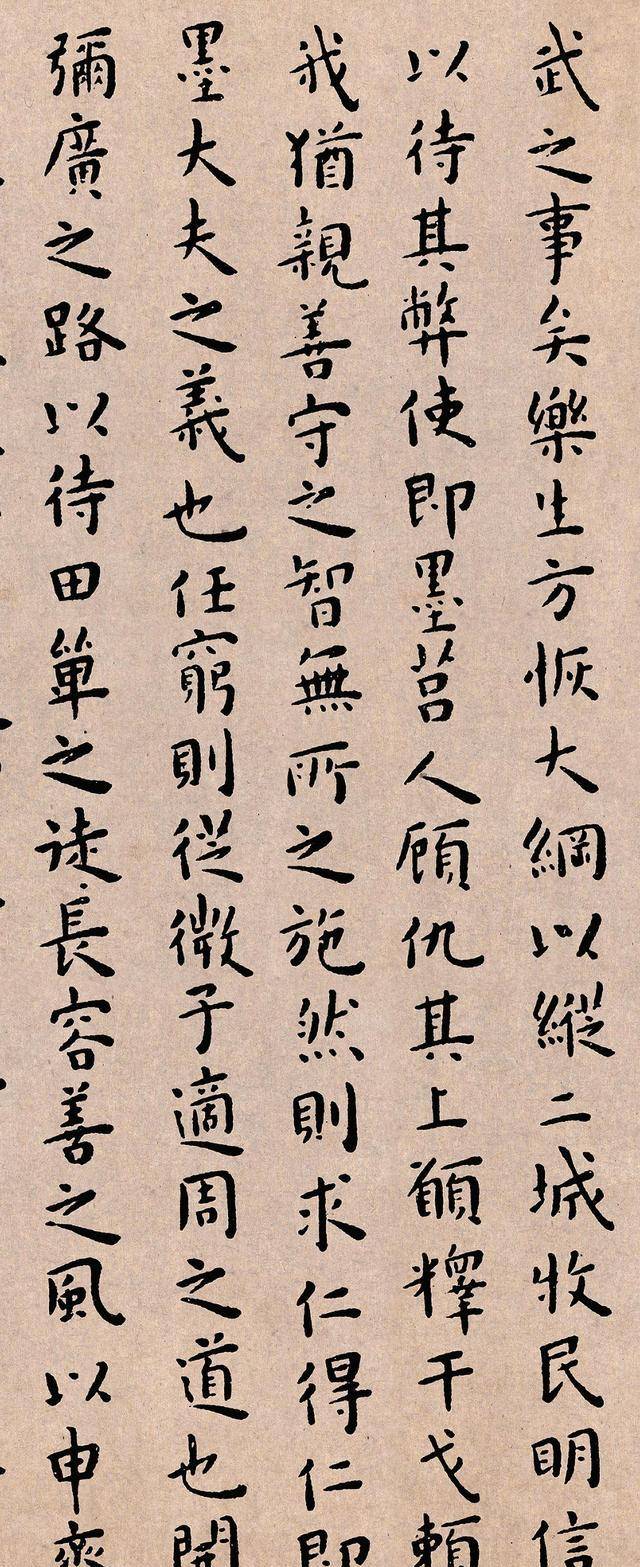 武之事矣樂生方恢大綱以縱二城收民明信
以待其弊使即墨莒人顧仇其上願釋干戈賴
我猶親善守之智無所之施然則求仁得仁即
墨大夫之義也任窮則從微子適周之道也開
彌廣之路以待田單之徒長容善之風以申齊